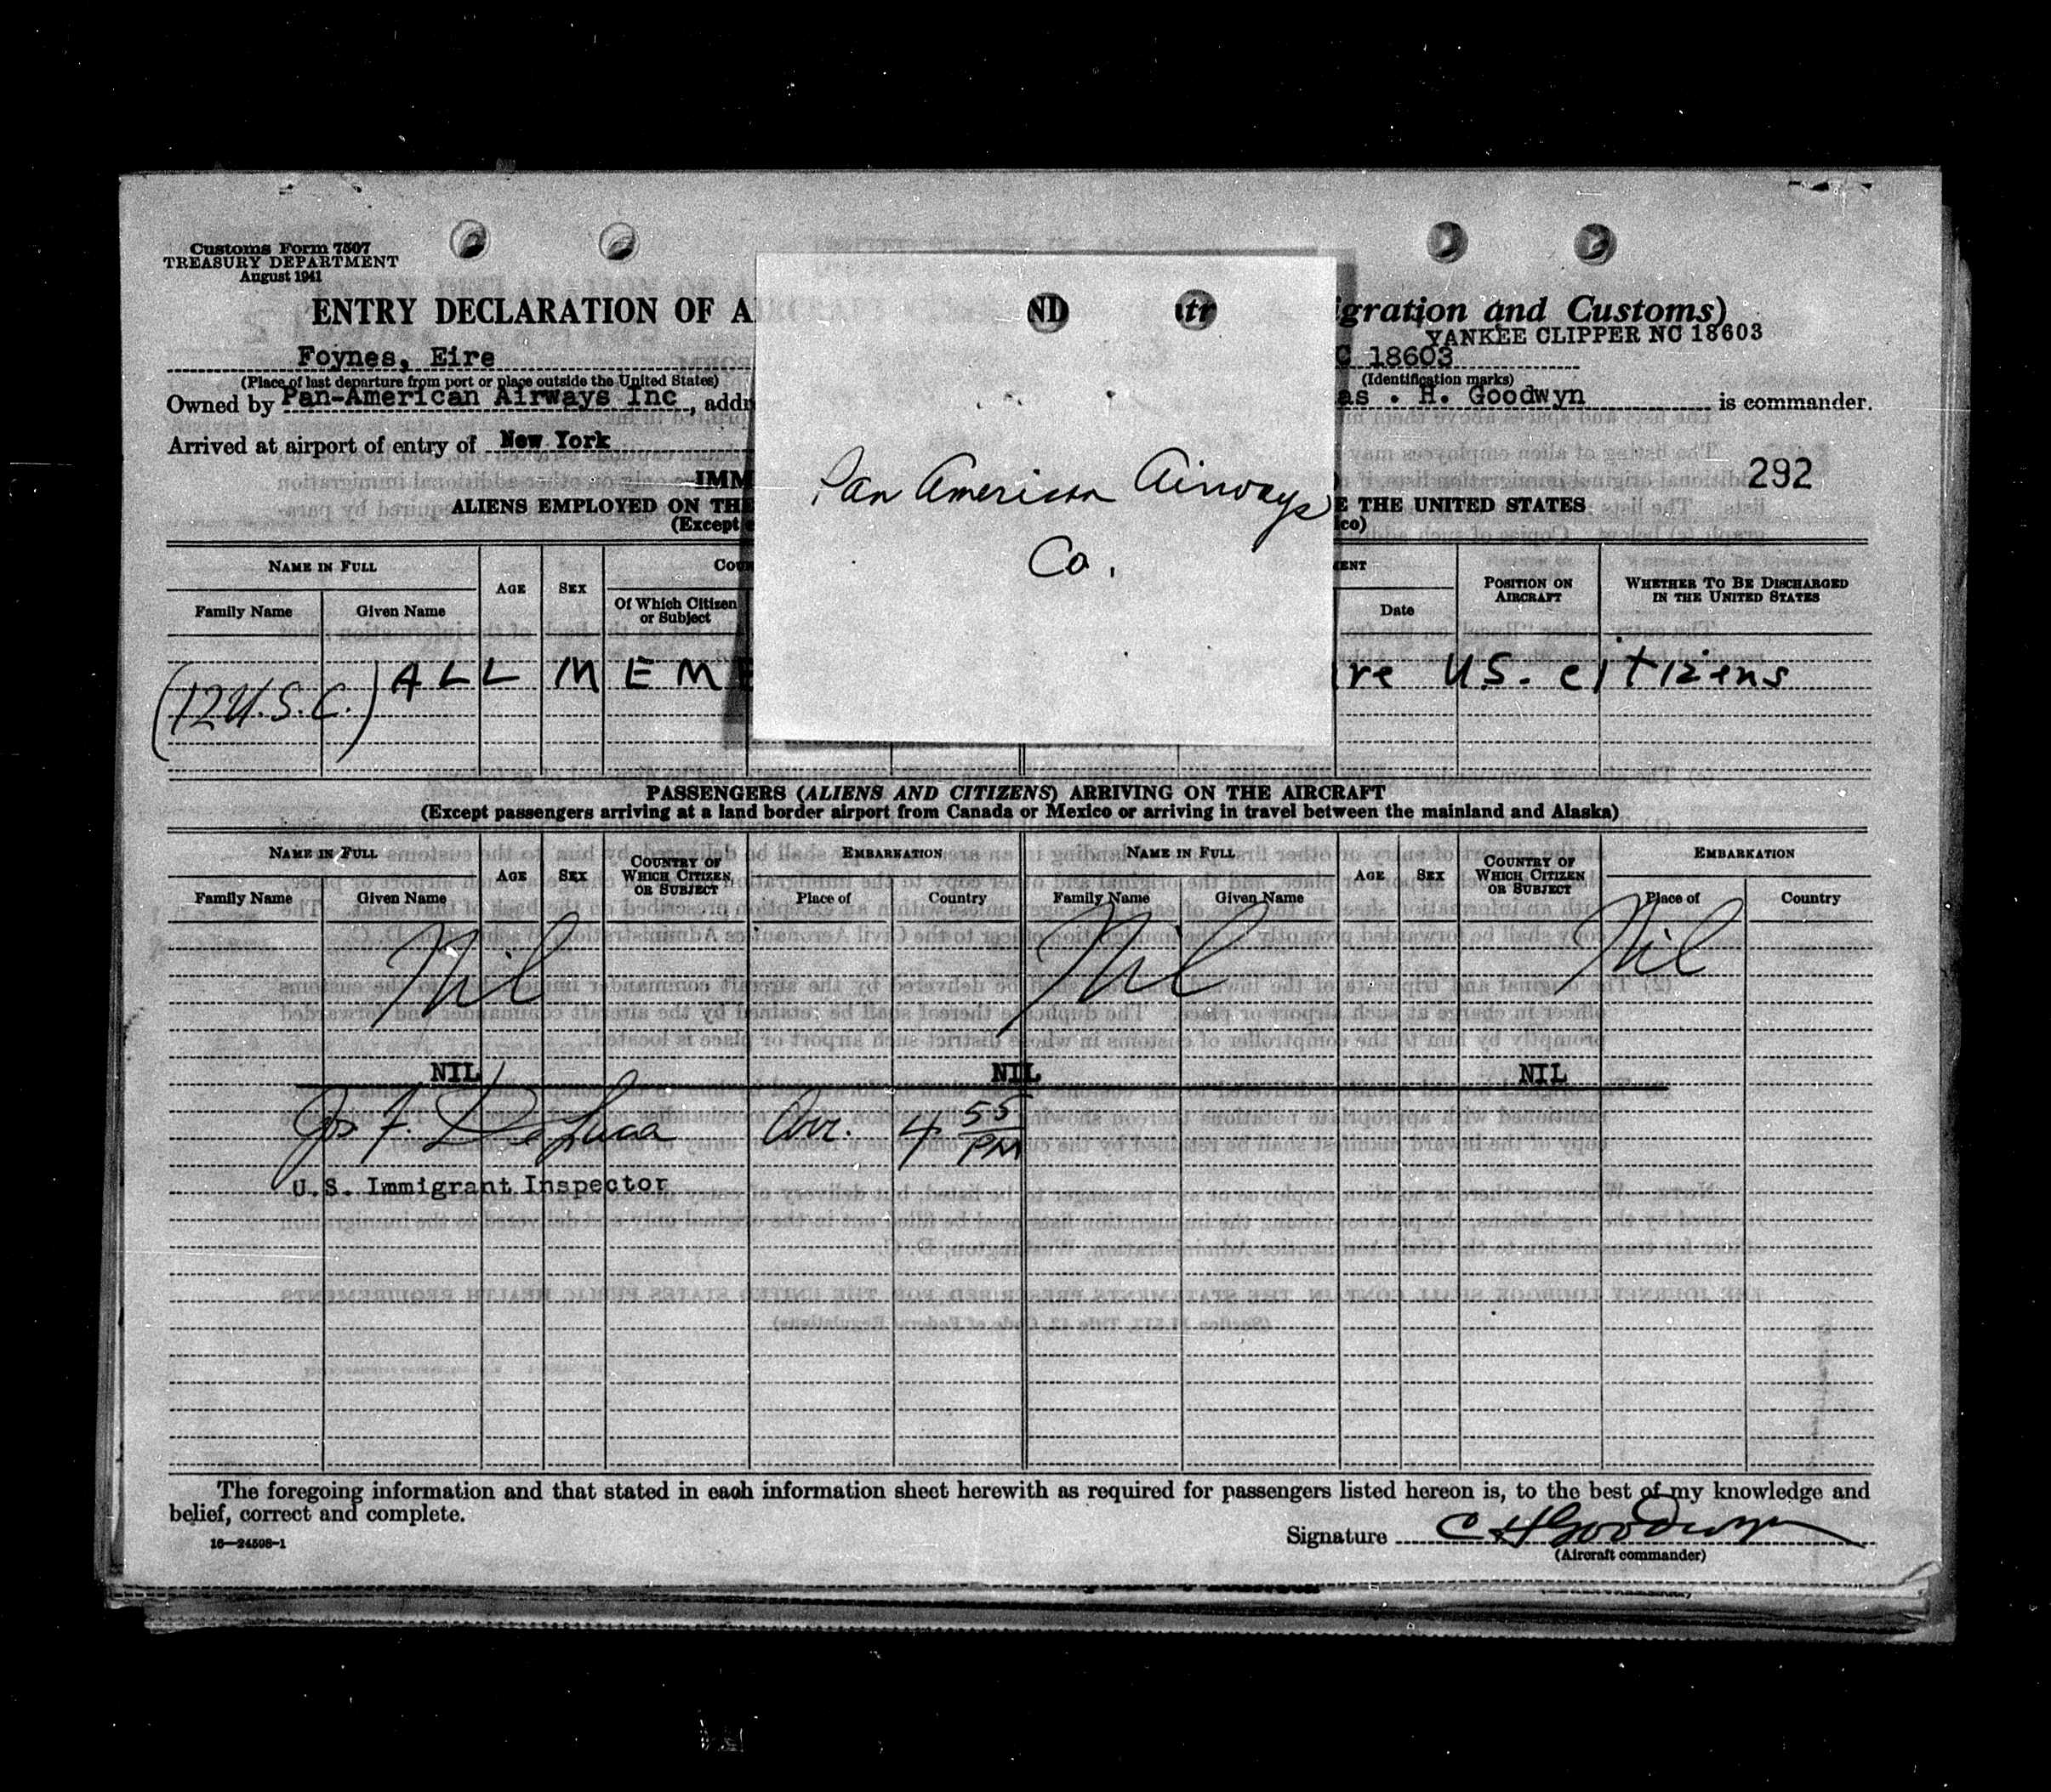 Customs Form 7507
TREASURY DEPARTMENT
August 1941
ENTRY DECLARATION OF A ND ntr igration and Customs)
YANKEE CLIPPER NC 18603
Foynes, Eire C 18603
(Place of last departure from port or place outside the United States) (Identification marks)
Owned by Pan-American Airways Inc , addr as . H. Goodwyn is commander.
Arrived at airport of entry of New York
Pan American Airways
Co.
292
IMM
ALIENS EMPLOYED ON THE E THE UNITED STATES
(Except co)
NAME IN FULL AGE SEX COU ENT POSITION ON AIRCRAFT WHETHER TO BE DISCHARGED IN THE UNITED STATES
Family Name Given Name Of Which Citizen or Subject Date
(12 U.S.C.) ALL MEME are U.S. citizens
PASSENGERS (ALIENS AND CITIZENS) ARRIVING ON THE AIRCRAFT
(Except passengers arriving at a land border airport from Canada or Mexico or arriving in travel between the mainland and Alaska)
NAME IN FULL AGE SEX COUNTRY OF WHICH CITIZEN OR SUBJECT EMBARKATION NAME IN FULL AGE SEX COUNTRY OF WHICH CITIZEN OR SUBJECT EMBARKATION
Family Name Given Name Place of Country Family Name Given Name Place of Country
Nil Nil Nil
NIL NIL NIL
Jos F. DeLuca Arr. 4 55 PM
U.S. Immigrant Inspector
The foregoing information and that stated in each information sheet herewith as required for passengers listed hereon is, to the best of my knowledge and
belief, correct and complete.
16—24508-1
Signature C H Goodwyn
(Aircraft commander)